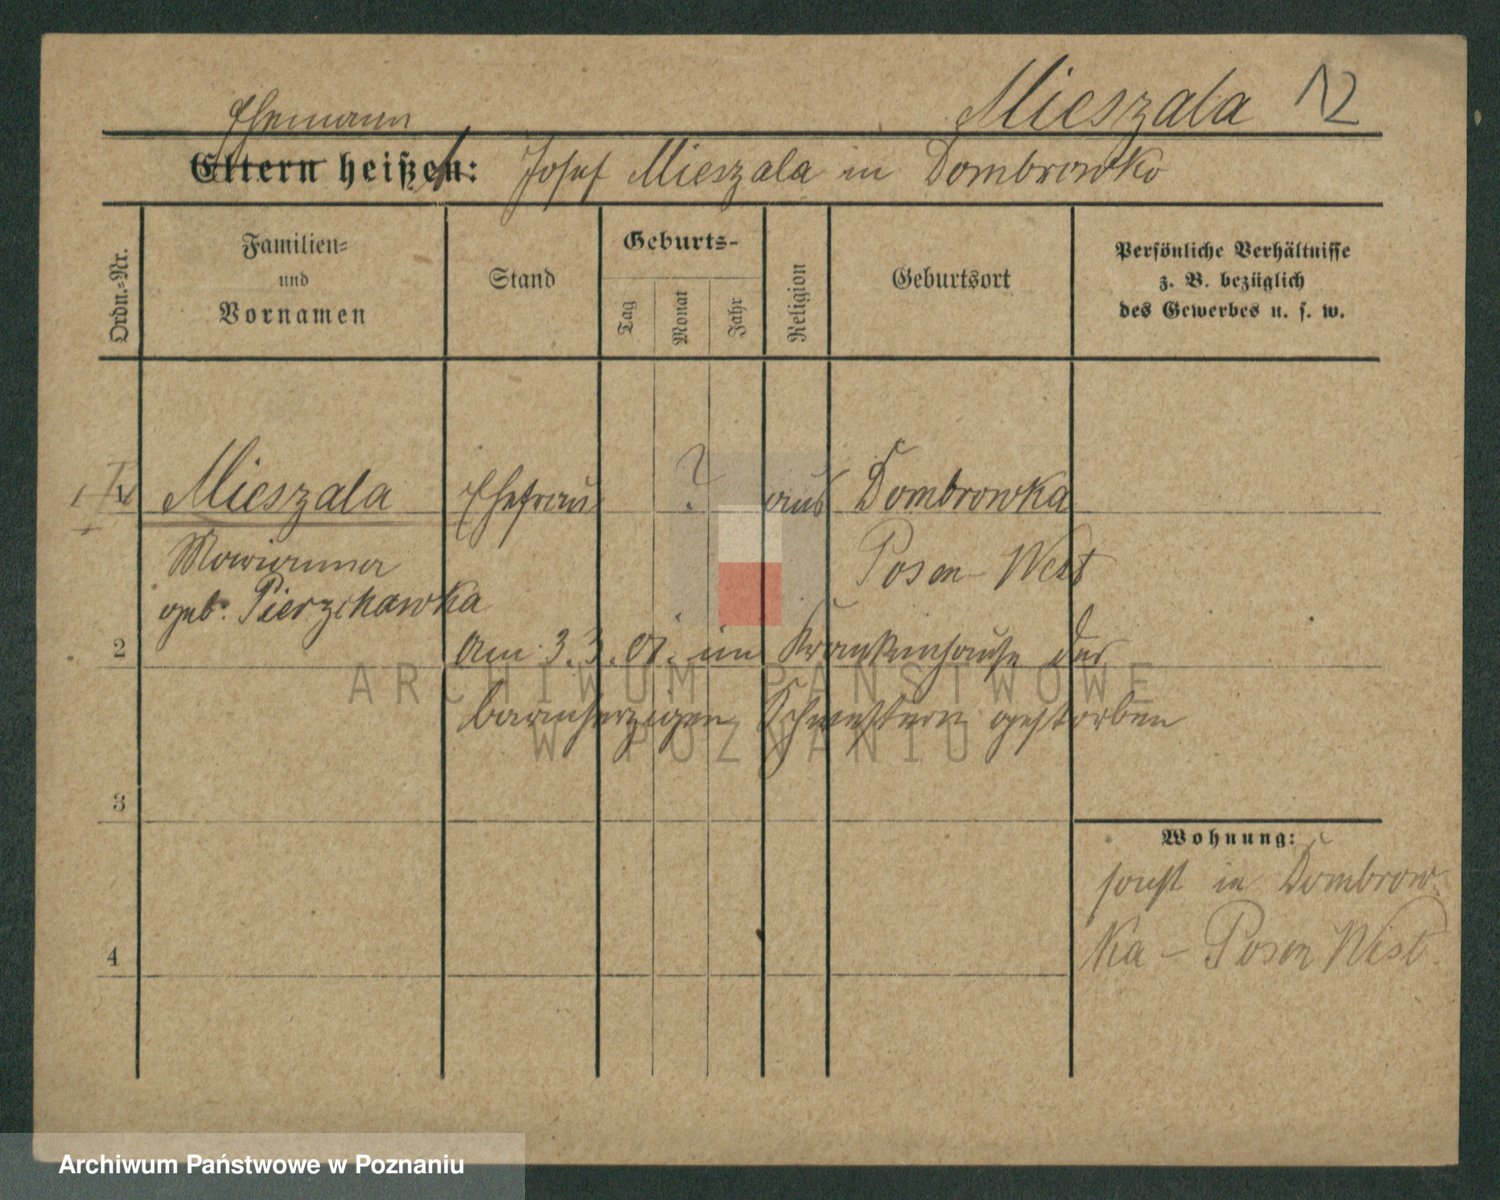 Mieszala 12
Ehemann
Eltern heißen: Josef Mieszala in Dombrowko
Ordn.=Nr.
Familien=
und
Vornamen
Stand
Geburts-
Tag
Monat
Jahr
Religion
Geburtsort
Persönliche Verhältnisse
z. B. bezüglich
des Gewerbes u. s. w.
1 Mieszala Ehefrau ? aus Dombrowka
Marianna Posen-West
geb. Pierzchawka
2 am 3.3.07. im Krankenhause der
barmherzigen Schwestern gestorben
ARCHIWUM PAŃSTWOWE
W POZNANIU
3
Wohnung:
sonst in Dombrow-
ka - Posen West.
4
Archiwum Państwowe w Poznaniu